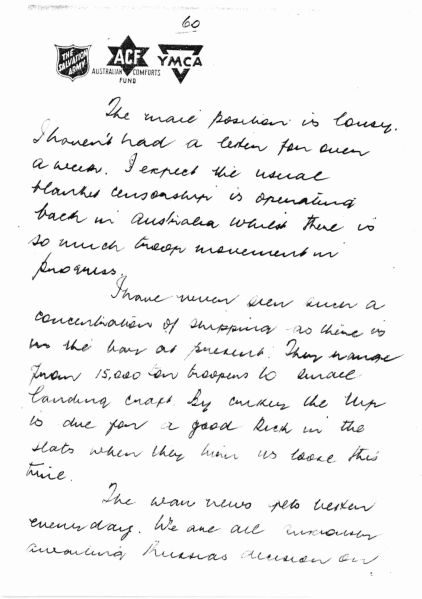 60
THE SALVATION ARMY
ACF
AUSTRALIAN COMFORTS FUND
YMCA
The mail position is lousy.
I haven't had a letter for over
a week. I expect the usual
blanket censorship is operating
back in Australia whilst there is
so much troop movement in
progress.
I have never seen such a
concentration of shipping as there is
in the bay at present. They range
from 15,000 ton troopers to small
landing craft. By cukey the Nip
is due for a good kick in the
slats when they turn us loose this
time.
The war news gets better
every day. We are all anxiously
awaiting Russias decision on